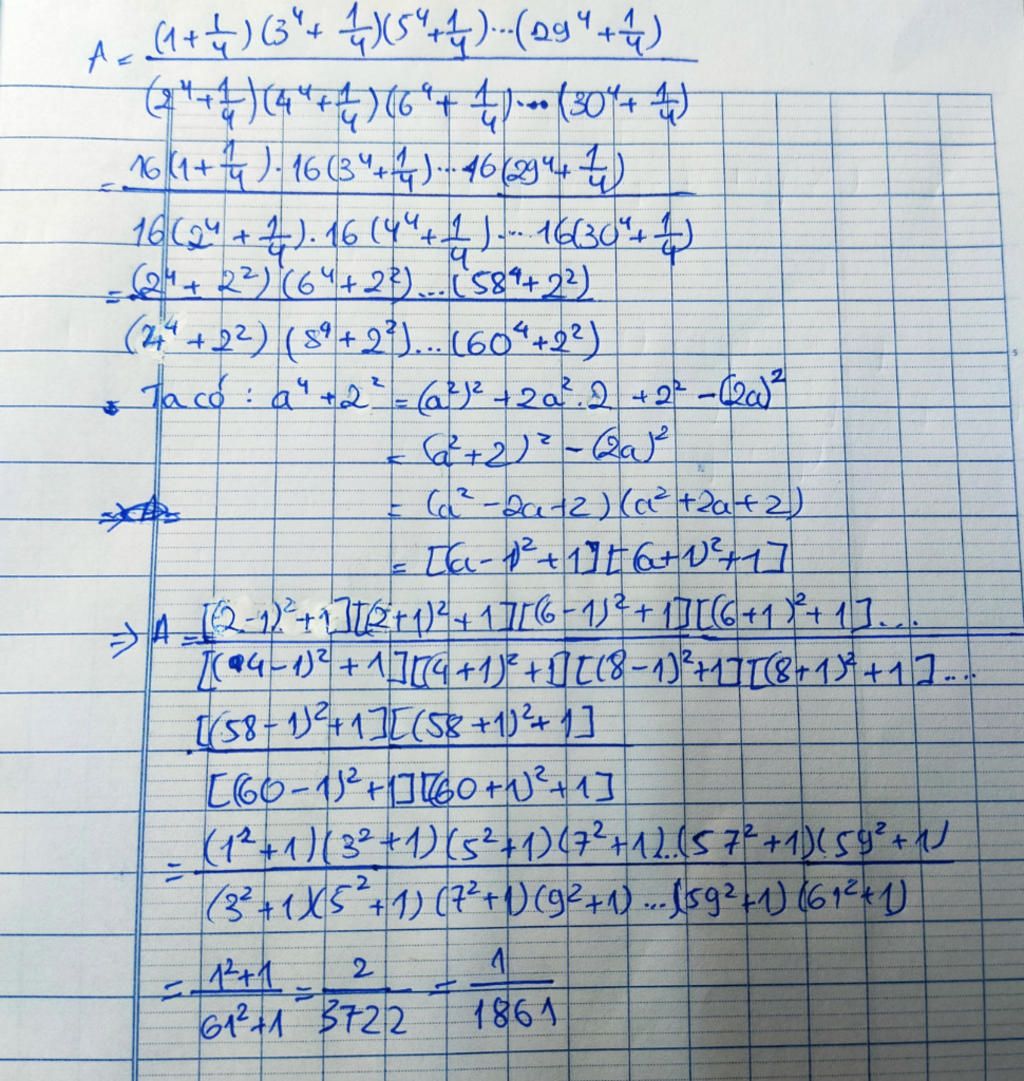 A = \frac{(1+\frac{1}{4})(3^4+\frac{1}{4})(5^4+\frac{1}{4})\cdots(29^4+\frac{1}{4})}{(2^4+\frac{1}{4})(4^4+\frac{1}{4})(6^4+\frac{1}{4})\cdots(30^4+\frac{1}{4})}
= \frac{16(1+\frac{1}{4}).16(3^4+\frac{1}{4})\cdots16(29^4+\frac{1}{4})}{16(2^4+\frac{1}{4}).16(4^4+\frac{1}{4})\cdots16(30^4+\frac{1}{4})}
= \frac{(2^4+2^2)(6^4+2^2)...(58^4+2^2)}{(4^4+2^2)(8^4+2^2)...(60^4+2^2)}
• Ta có : a^4+2^2 = (a^2)^2+2a^2.2+2^2-(2a)^2
= (a^2+2)^2-(2a)^2
= (a^2-2a+2)(a^2+2a+2)
= [(a-1)^2+1][(a+1)^2+1]
⇒ A = \frac{[(2-1)^2+1][(2+1)^2+1][(6-1)^2+1][(6+1)^2+1]...}{[(4-1)^2+1][(4+1)^2+1][(8-1)^2+1][(8+1)^2+1]...}
\frac{[(58-1)^2+1][(58+1)^2+1]}{[(60-1)^2+1][(60+1)^2+1]}
= \frac{(1^2+1)(3^2+1)(5^2+1)(7^2+1)..(57^2+1)(59^2+1)}{(3^2+1)(5^2+1)(7^2+1)(9^2+1)...(59^2+1)(61^2+1)}
= \frac{1^2+1}{61^2+1} = \frac{2}{3722} = \frac{1}{1861}